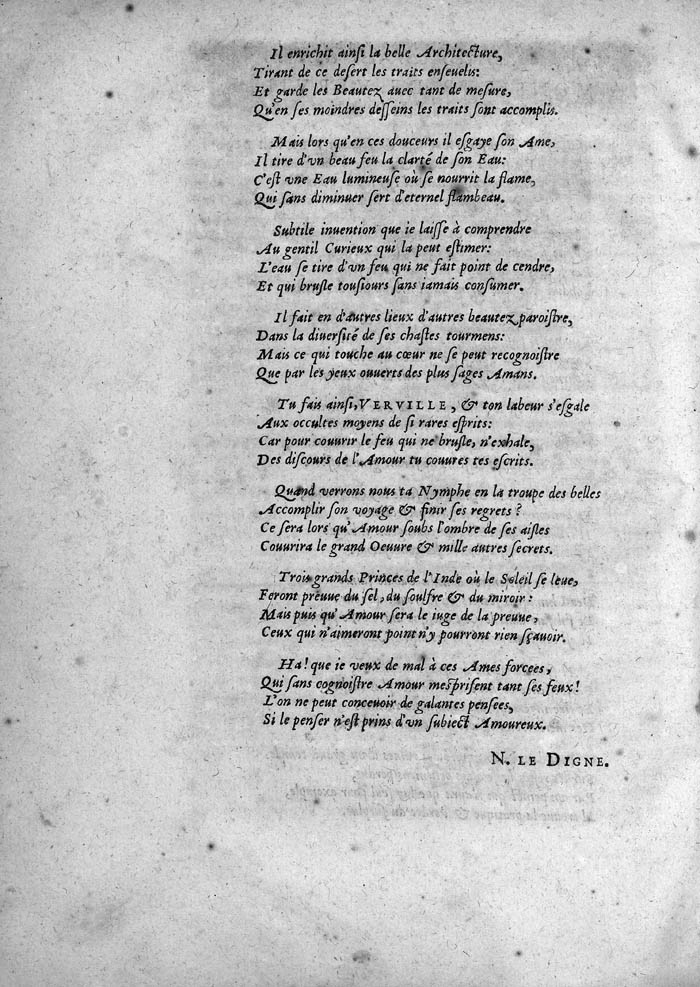 Il enrichit ainſi la belle Architecture,
Tirant de ce deſert les traits enſeuelis:
Et garde les Beautez auec tant de meſure,
Qu'en ſes moindres deſſeins les traits ſont accomplis.
Mais lors qu'en ces douceurs il eſgaye ſon Ame,
Il tire d'vn beau feu la clarté de ſon Eau:
C'eſt vne Eau lumineuſe où ſe nourrit la flame,
Qui ſans diminuer ſert d'eternel flambeau.
Subtile inuention que ie laiſſe à comprendre
Au gentil Curieux qui la peut eſtimer:
L'eau ſe tire d'vn feu qui ne fait point de cendre,
Et qui bruſle touſiours ſans iamais conſumer.
Il fait en d'autres lieux d'autres beautez paroiſtre,
Dans la diuerſité de ſes chaſtes tourmens:
Mais ce qui touche au cœur ne ſe peut recognoiſtre
Que par les yeux ouuerts des plus ſages Amans.
Tu fais ainſi, VERVILLE, & ton labeur s'eſgale
Aux occultes moyens de ſi rares eſprits:
Car pour couurir le feu qui ne bruſle, n'exhale,
Des diſcours de l'Amour tu couures tes eſcrits.
Quand verrons nous ta Nymphe en la troupe des belles
Accomplir ſon voyage & finir ſes regrets?
Ce ſera lors qu'Amour ſoubs l'ombre de ſes aiſles
Couurira le grand Oeuure & mille autres ſecrets.
Trois grands Princes de l'Inde où le Soleil ſe leue,
Feront preuue du ſel, du ſoulfre & du miroir:
Mais puis qu'Amour ſera le iuge de la preuue,
Ceux qui n'aimeront point n'y pourront rien ſçauoir.
Ha! que ie veux de mal à ces Ames forcees,
Qui ſans cognoiſtre Amour meſpriſent tant ſes feux!
L'on ne peut conceuoir de galantes penſees,
Si le penſer n'eſt prins d'vn ſubiect Amoureux.
N. LE DIGNE.